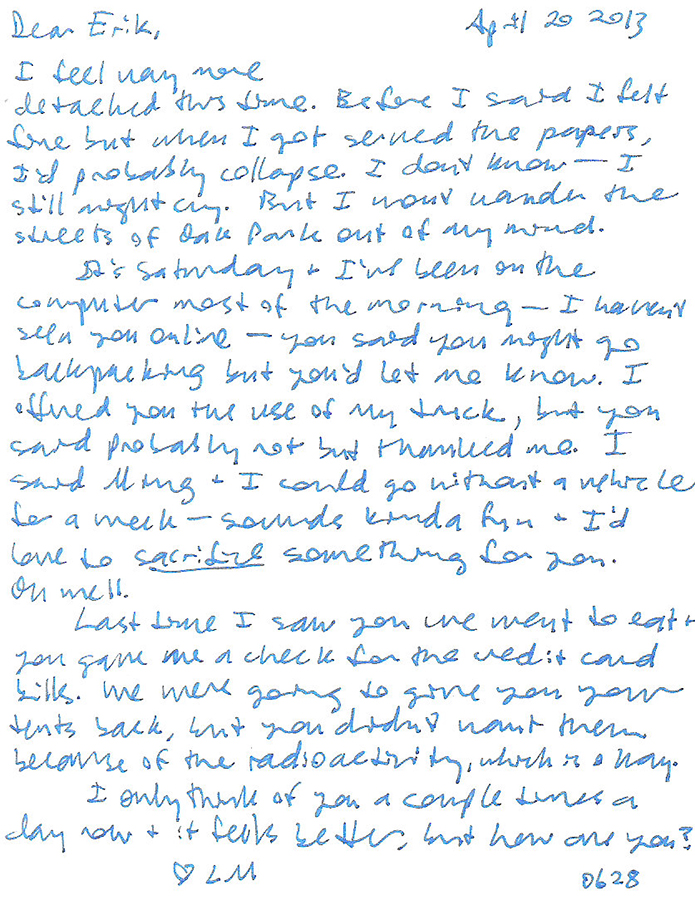 Dear Erik,
April 20 2013
I feel way more
detached this time. Before I said I felt
fine but when I got served the papers,
I'd probably collapse. I don't know — I
still might cry. But I won't wander the
streets of Oak Park out of my mind.
It's Saturday + I've been on the
computer most of the morning — I haven't
seen you online — you said you might go
backpacking but you'd let me know. I
offered you the use of my truck, but you
said probably not but thanked me. I
said Ming + I could go without a vehicle
for a week — sounds kinda fun + I'd
love to sacrifice something for you.
Oh well.
Last time I saw you we went to eat +
you gave me a check for the credit card
bills. We were going to give you your
tents back, but you didn't want them
because of the radioactivity, which is okay.
I only think of you a couple times a
day now + it feels better, but how are you?
♡ LM
0628